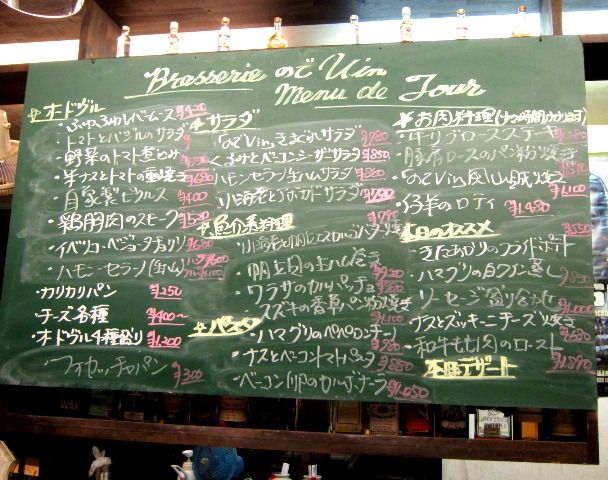 Brasserie ので Vin
Menu de Jour
オードヴル
・トマトとバジルのサラダ
・野菜のトマト煮込み
・自家製ピクルス ¥400
・鶏胸肉のスモーク ¥520
・イベリコ・ベジョータチョリソ ¥680
・ハモン・セラーノ(生ハム)
・カリカリパン ¥250
・チーズ各種 ¥400~
・オードヴル4種盛り ¥1,200
・フォカッチャのパン ¥300
サラダ
サラダ ¥780
・くるみとベーコンシーザーサラダ ¥850
・ハモンセラーノ生ハムサラダ ¥860
・小海老とアボカドサラダ
魚介系料理 ¥990
・小海老と帆立エスカルゴバター焼き
・帆立貝の生ハム巻き ¥920
・ワラサのカルパッチョ
・スズキの香草パン粉焼き
パスタ
・ハマグリのペペロンチーノ ¥980
・ナスとベーコントマトパスタ ¥880
・ベーコン 卵のカルボナーラ ¥1,050
お肉料理
・牛リブロースステーキ
・豚肩ロースのパン粉焼き
¥1,100
・仔羊のロティ ¥1,480
本日のオススメ ¥550
・きたあかりのフライドポテト
・ハマグリの白ワイン蒸し
・ソーセージ盛り合わせ
・ナスとズッキーニチーズ焼き
・和牛もも肉のロースト ¥1,890
本日デザート